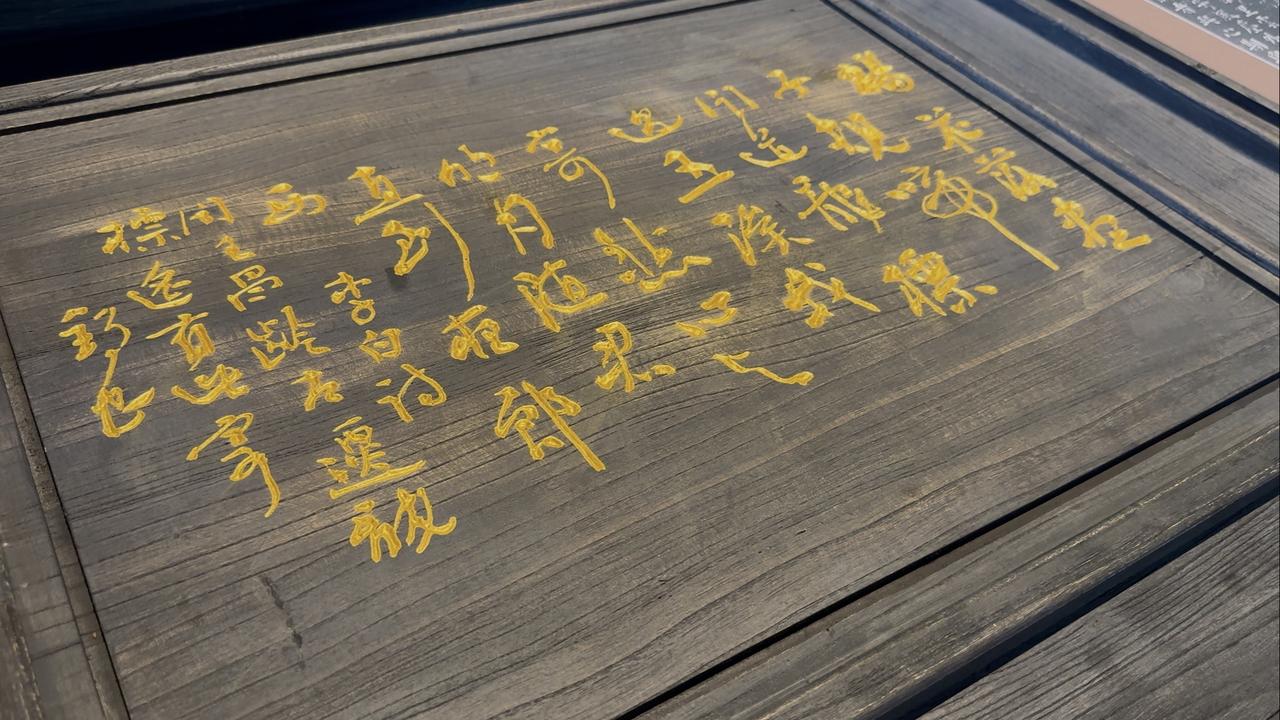 楊花落盡
子規啼
聞道龍標
過五溪我
寄愁心与
明月随
直到夜郎
西 李白詩
聞王昌齡左遷龍
標遙有此寄